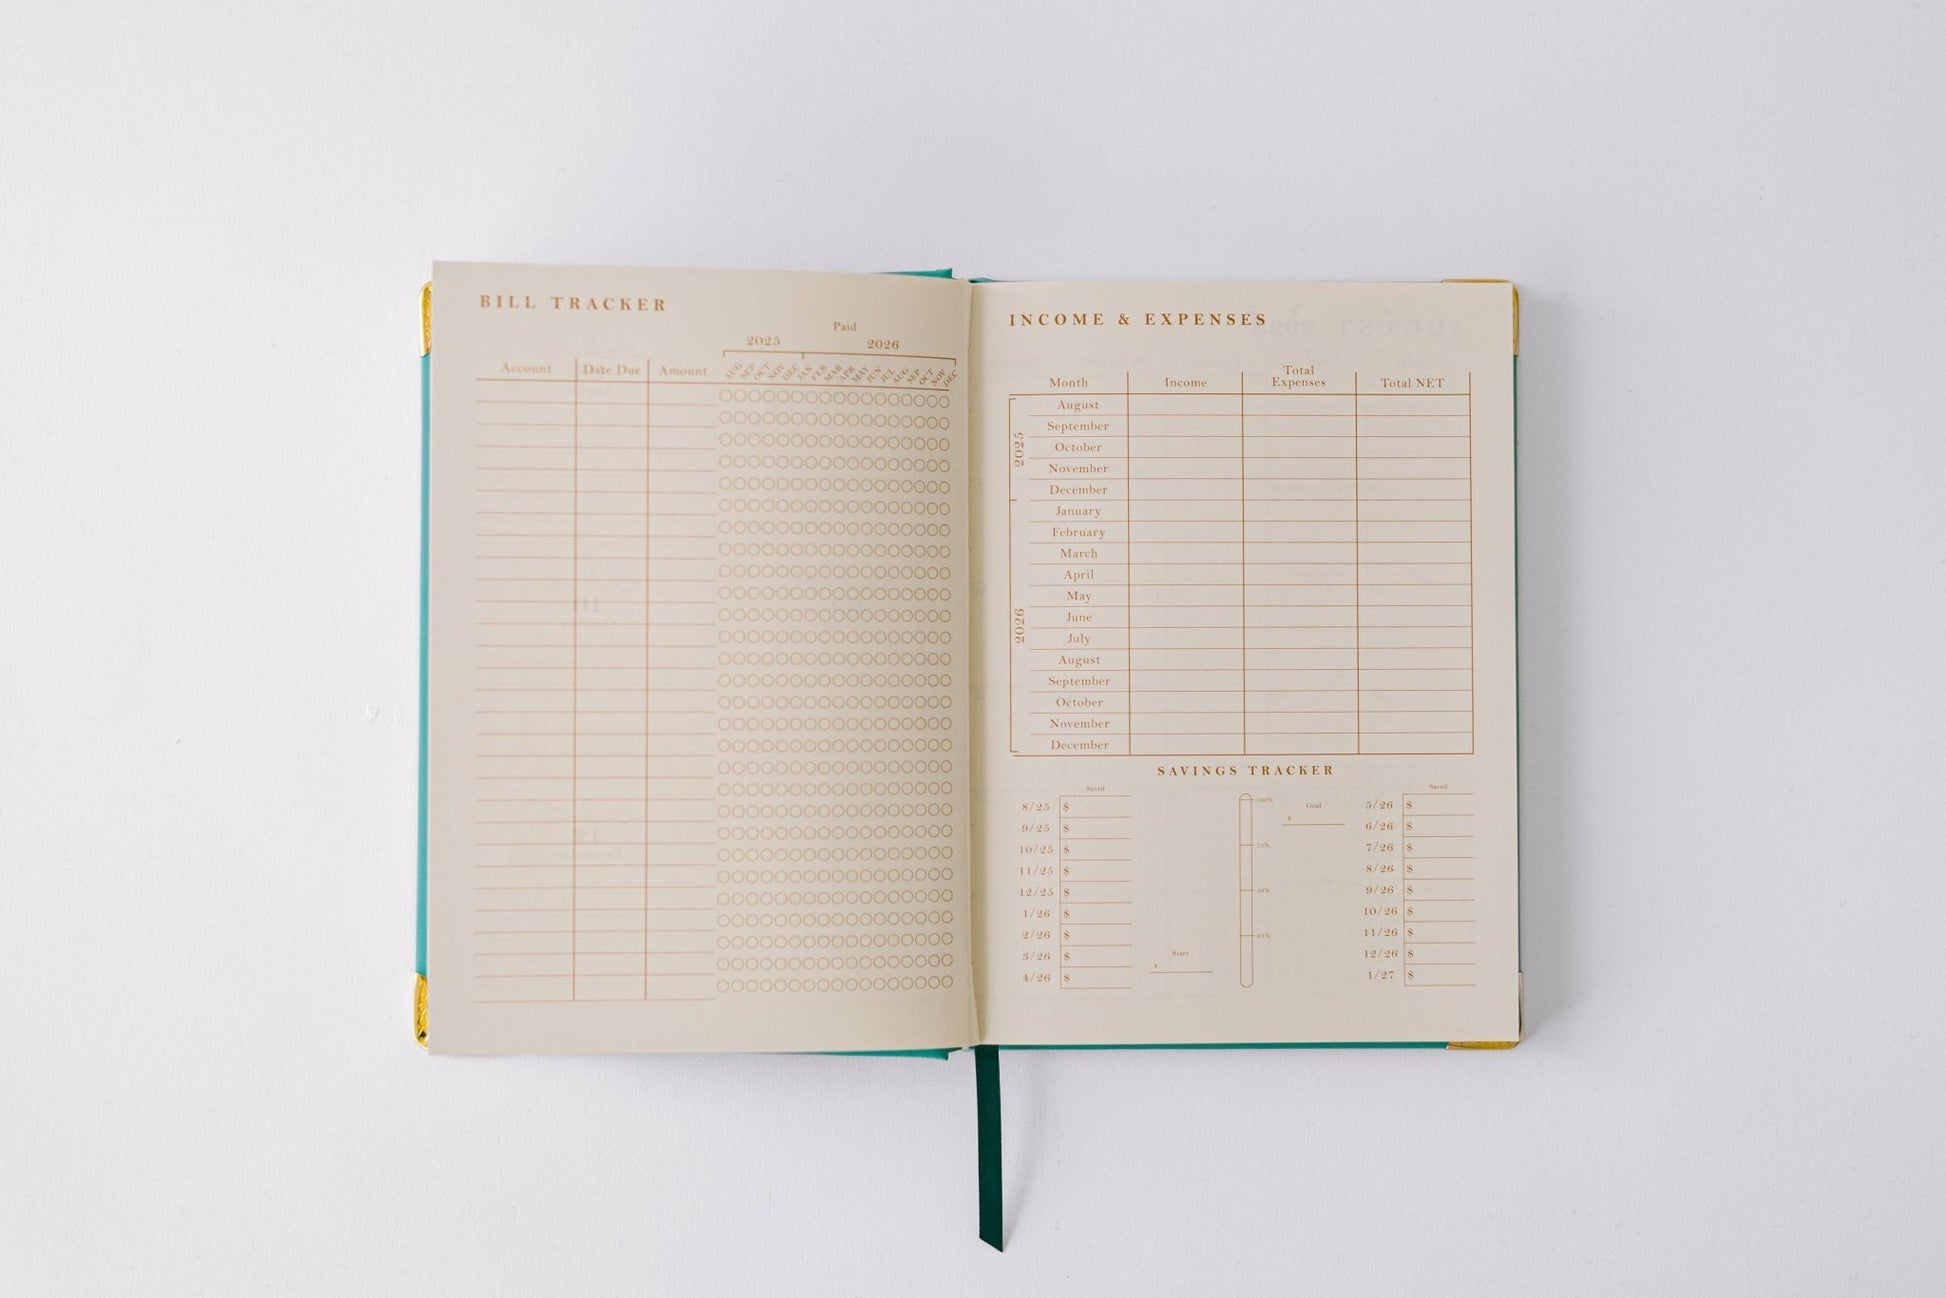 BILL TRACKER
Paid
2025 2026
Account Date Due Amount AUG SEP OCT NOV DEC JAN FEB MAR APR MAY JUN JUL AUG SEP OCT NOV DEC
INCOME & EXPENSES
Month Income Total Expenses Total NET
2025
August
September
October
November
December
2026
January
February
March
April
May
June
July
August
September
October
November
December
SAVINGS TRACKER
Saved
8/25 $
9/25 $
10/25 $
11/25 $
12/25 $
1/26 $
2/26 $
3/26 $
4/26 $
Start
$
100%
75%
50%
25%
Goal
$
Saved
5/26 $
6/26 $
7/26 $
8/26 $
9/26 $
10/26 $
11/26 $
12/26 $
1/27 $